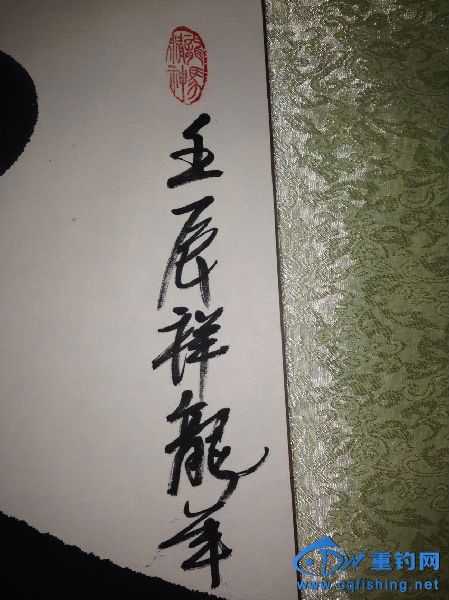 龍馬精神
壬辰祥龍年
重钓网
www.cqfishing.net